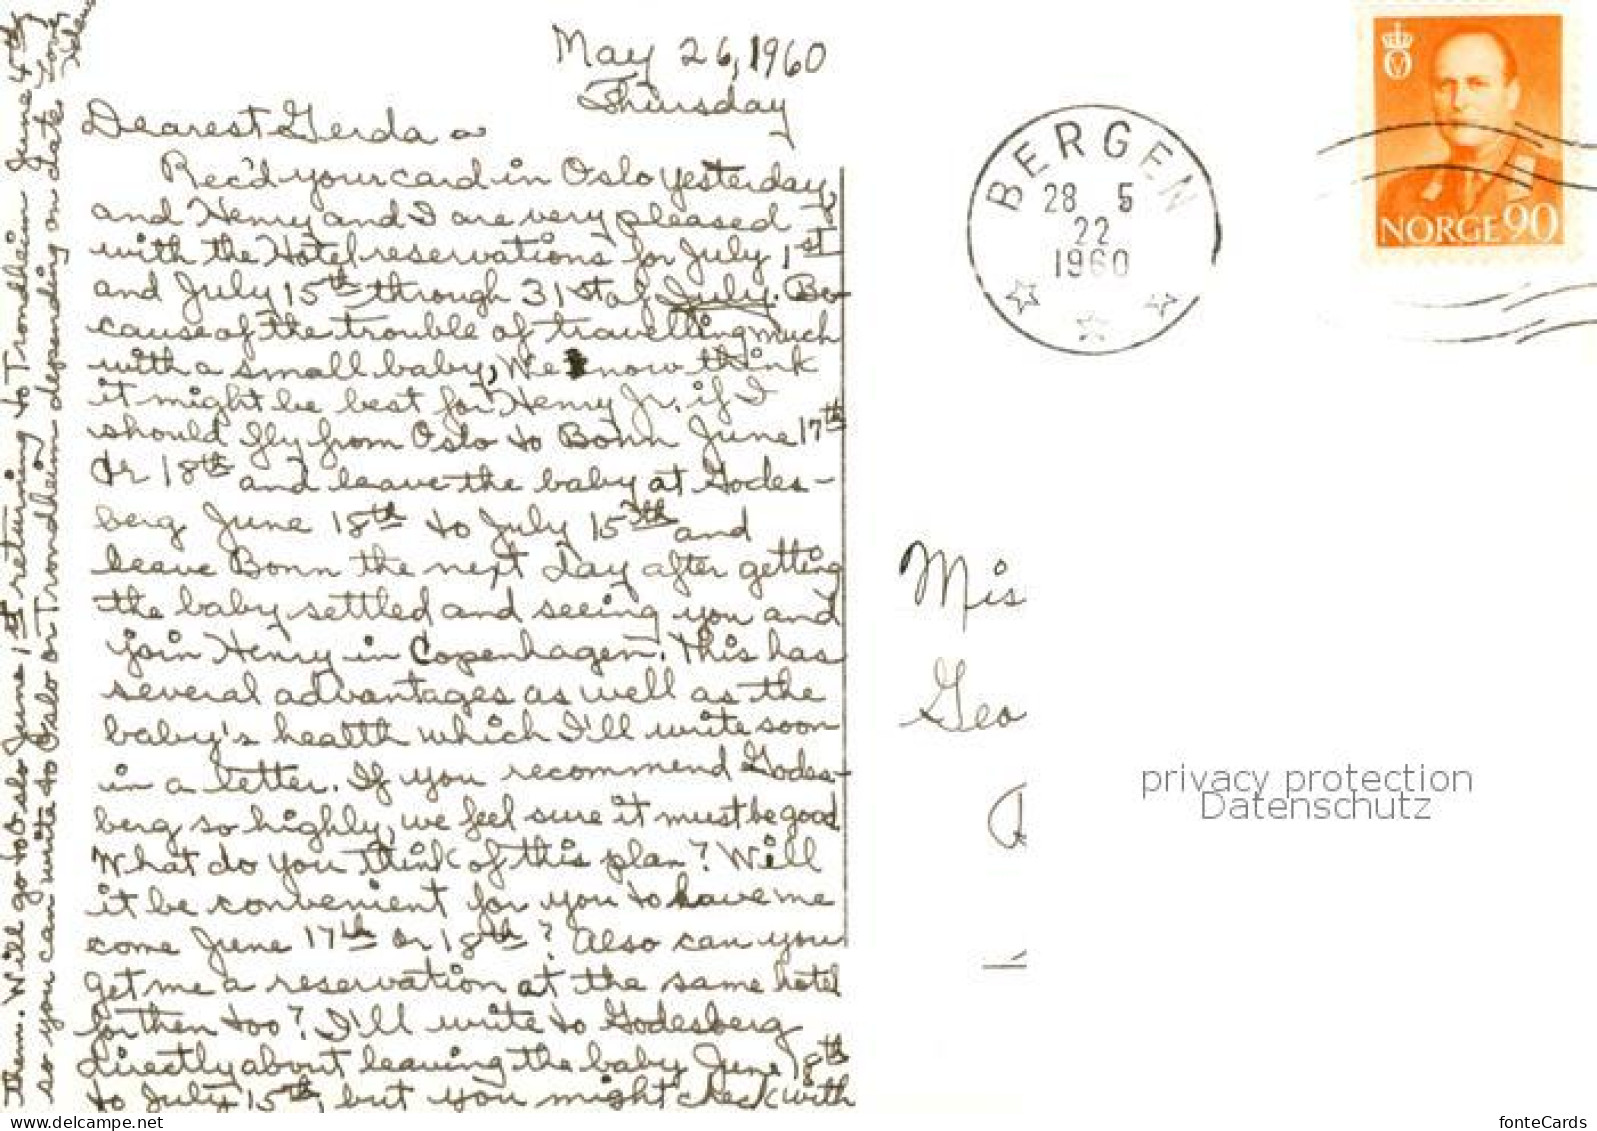 May 26, 1960
Thursday
Dearest Gerda ~
Rec'd your card in Oslo yesterday,
and Henry and I are very pleased
with the Hotel reservations for July 1st
and July 15th through 31st of July. Be-
cause of the trouble of travelling much
with a small baby, We now think
it might be best for Henry Jr. if I
should fly from Oslo to Bonn June 17th
or 18th and leave the baby at Godes-
berg June 18th to July 15th and
leave Bonn the next day after getting
the baby settled and seeing you and
join Henry in Copenhagen. This has
several advantages as well as the
baby's health which I'll write soon
in a letter. If you recommend Godes-
berg so highly, we feel sure it must be good
What do you think of this plan? Will
it be convenient for you to have me
come June 17th or 18th? Also can you
get me a reservation at the same hotel
for then too? I'll write to Godesberg
directly about leaving the baby June 18th
to July 15th, but you might check with
them. Will go to Oslo June 1st returning to Trondheim June 4th
so you can write to Oslo or Trondheim depending on date. Love,
BERGEN
28 5
22
1960
NORGE 90
Mis
Geo
privacy protection
Datenschutz
www.delcampe.net
fonteCards